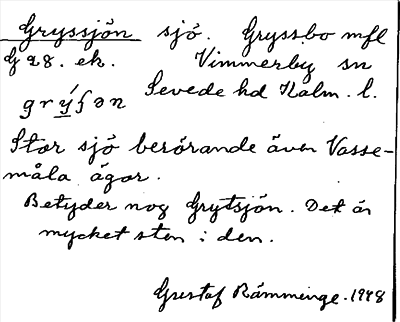 Gryssjön sjö. Gryssbo mfl
G 28. ek. Vimmerby sn
grýʃən Sevede hd Kalm. l.
Stor sjö berörande även Vasse-
måla ägor.
Betyder nog Grytsjön. Det är
mycket sten i den.
Gustaf Rämminge. 1948